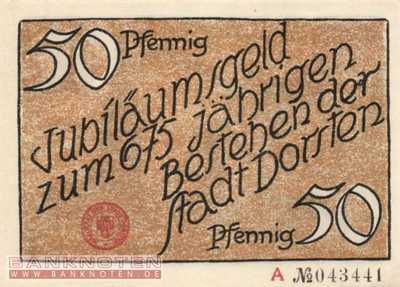 50 Pfennig
Jubiläumsgeld
zum 675 jährigen
Bestehen der
Stadt Dorsten
Pfennig 50
A №043441
BANKNOTEN
WWW.BANKNOTEN.DE